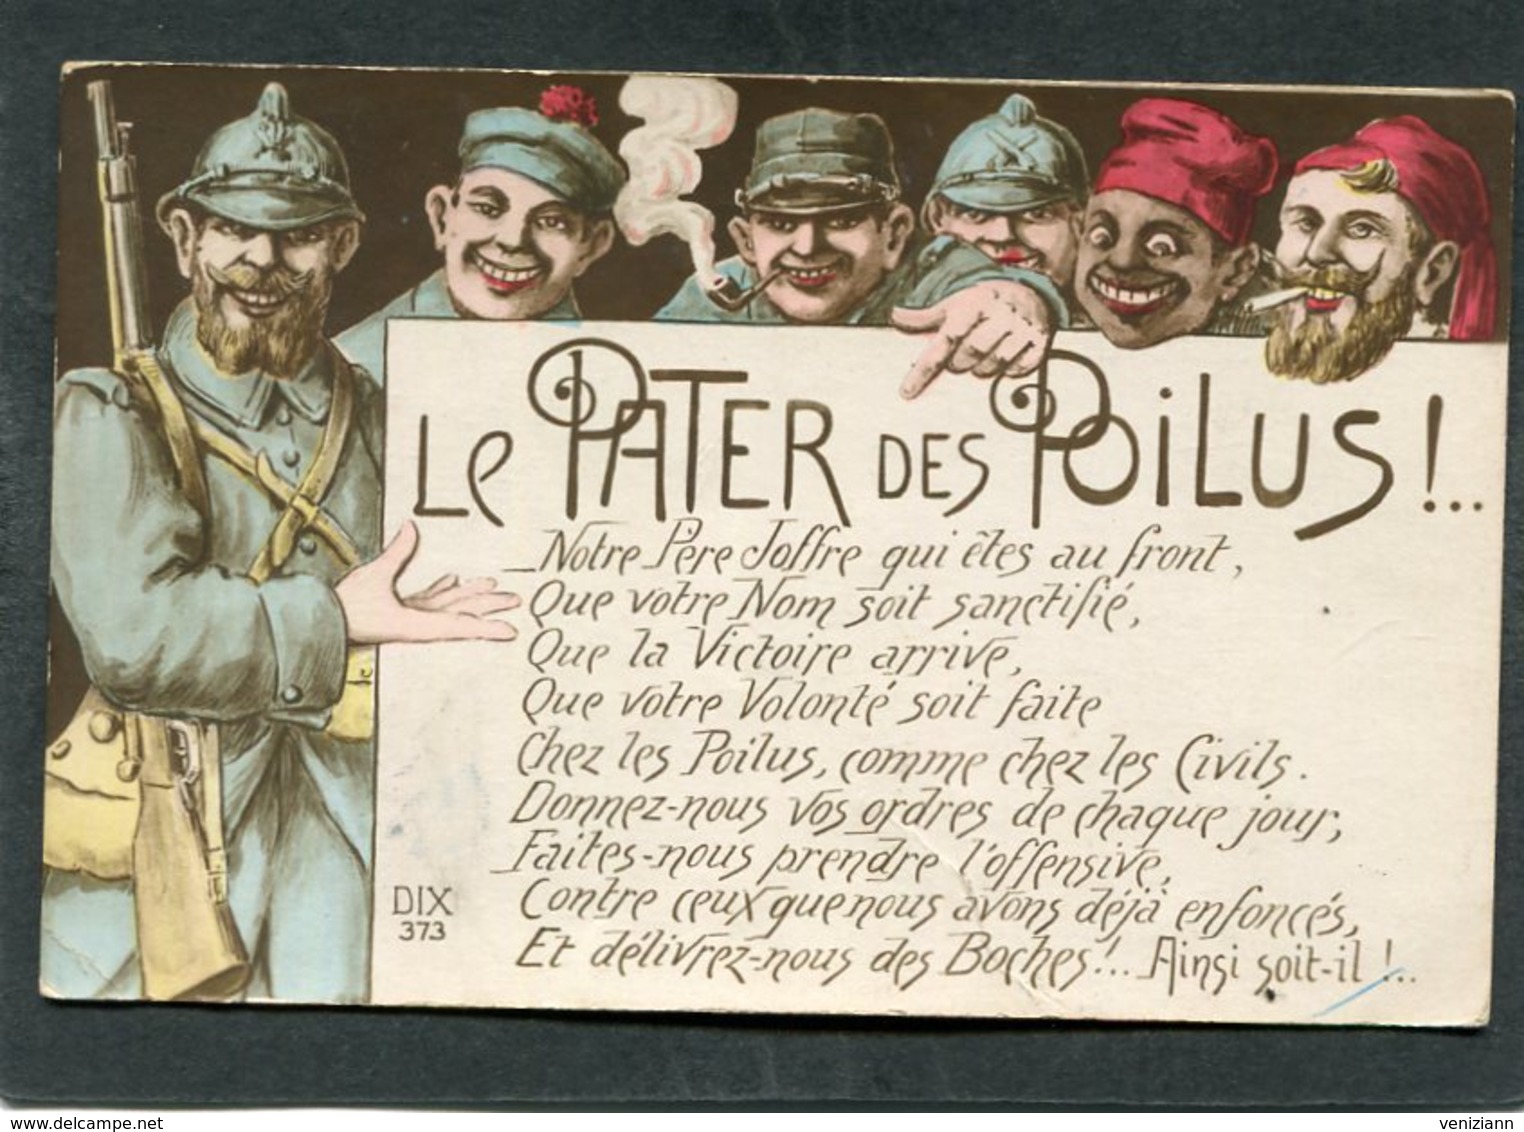 LE PATER DES POILUS !...
Notre Père Joffre qui êtes au front,
Que votre Nom soit sanctifié,
Que la Victoire arrive,
Que votre Volonté soit faite
Chez les Poilus, comme chez les Civils.
Donnez-nous vos ordres de chaque jour,
Faites-nous prendre l'offensive,
Contre ceux que nous avons déjà enfoncés,
Et délivrez-nous des Boches!... Ainsi soit-il !...
DIX
373
www.delcampe.net
veniziann